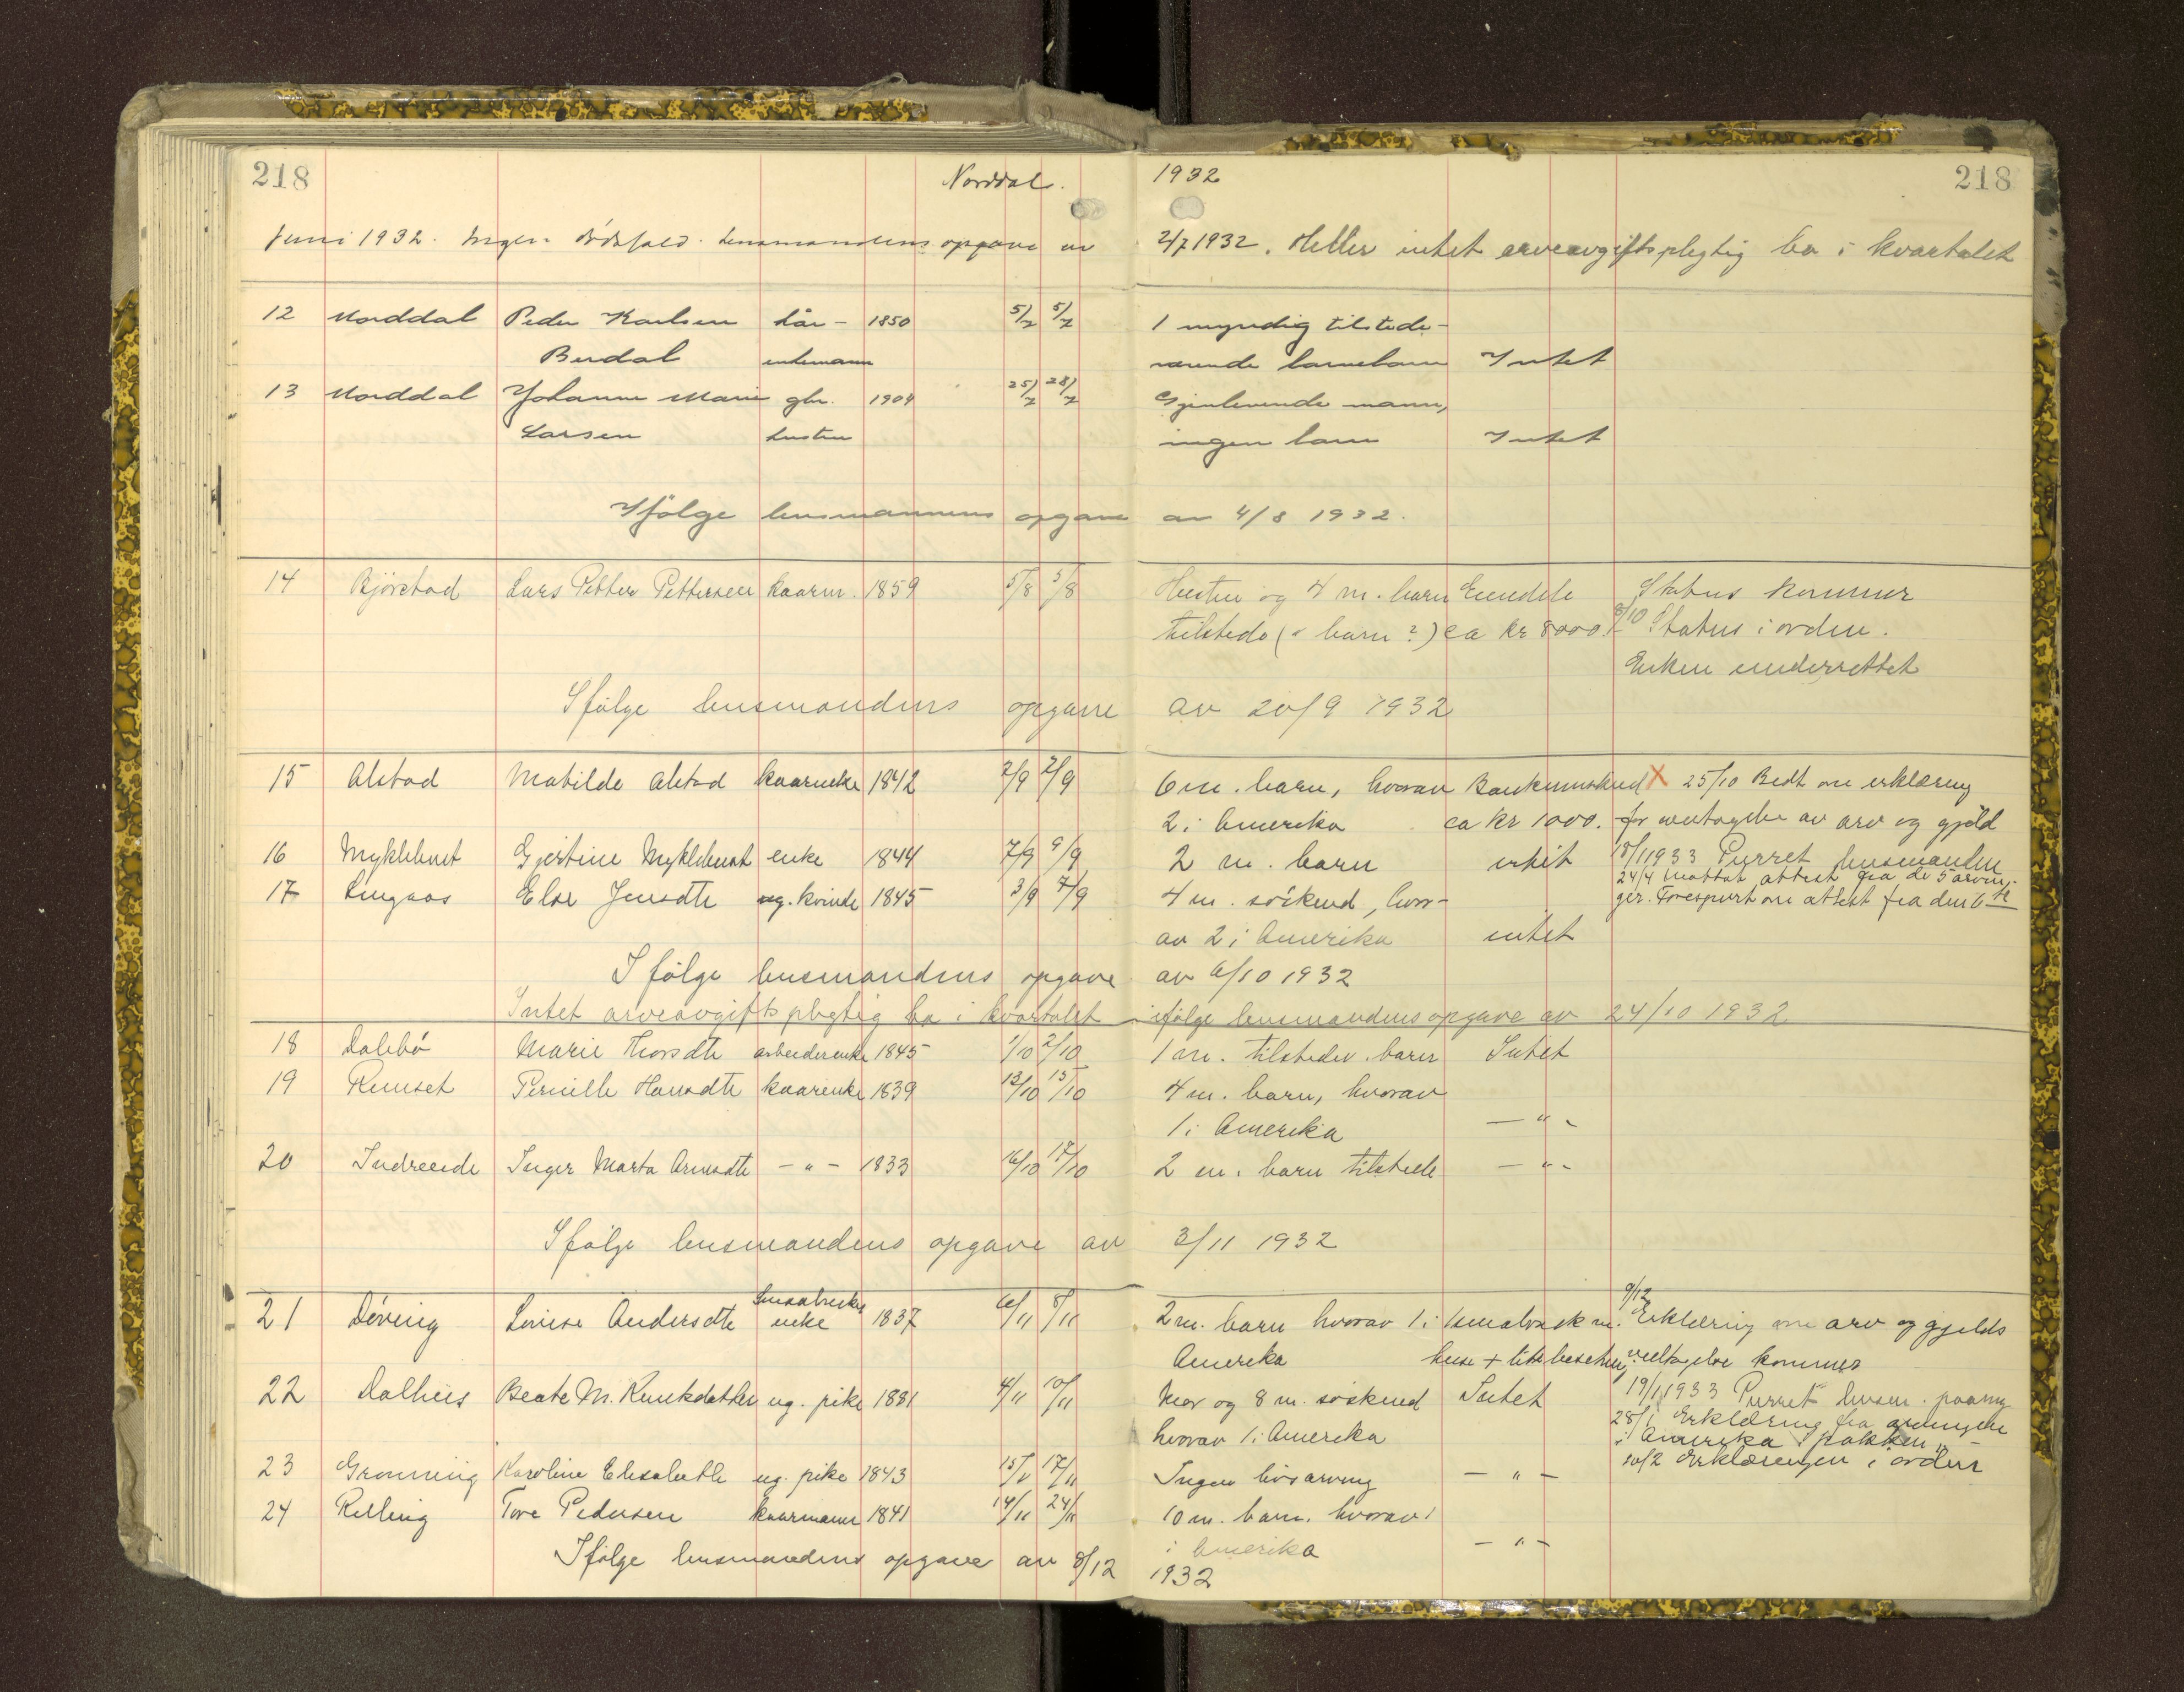 218 Norddal. 1932 218
Juni 1932. Ingen dödsfald. Lensmandens opgave av 2/7 1932. Heller intet arveavgiftspligtig bo i kvartalet
12 Norddal Peder Karlsen kår- 1850 5/7 5/7 1 myndig tilstede-
Berdal enkemann værende barnebarn Intet
13 Norddal Johanne Marie gbr. 1904 25/7 28/7 Gjenlevende mann,
Larsen hustru ingen barn Intet
Ifölge lensmannens opgave av 4/8 1932.
14 Björstad Lars Petter Pettersen kaarm. 1859 5/8 5/8 Hustru og 4 m. barn Eiendele Status kommer
tilstede ( barn ?) ca kr 8000 8/10 Status i orden.
Enken underrettet
Ifölge lensmandens opgave av 20/9 1932
15 Alstad Matilde Alstad kaarenke 1842 2/9 2/9 6 m. barn, hvorav Bankinnskud X 25/10 Bedt om erklæring
2 i Amerika ca kr 1000. for overtagelse av arv og gjeld
16 Myklebust Gjertine Myklebust enke 1844 7/9 9/9 2 m. barn intet 18/1 1933 Purret lensmanden
17 Lingaas Else Jensdtr ug. kvinde 1845 3/9 7/9 4 m. söskend, hvor- 24/4 Mottat attest fra de 5 arvin-
ger. Forespurt om attest fra den 6te
av 2 i Amerika intet
Ifölge lensmandens opgave av 6/10 1932
Intet arveavgiftspligtig bo i kvartalet ifölge lensmandens opgave av 24/10 1932
18 Dalsbö Marie Thorsdtr arbeiderenke 1845 1/10 2/10 1 m. tilstedev. barn Intet
19 Remset Pernille Hansdtr kaarenke 1839 13/10 15/10 4 m. barn, hvorav
1 i Amerika — " -
20 Indreeide Inger Marta Arnesdtr — " — 1833 16/10 17/10 2 m. barn tilstede — " -
Ifölge lensmandens opgave av 3/11 1932
21 Döving Lovise Andersdtr enke 1837 6/11 8/11 2 m. barn hvorav 1 i 9/12 Erklæring om arv og gjelds
Amerika huse + lite vedtagelse kommer
22 Dalhus Beate M. Knutsdatter ug. pike 1881 4/11 10/11 Mor og 8 m. söskend Intet 19/1 1933 Purret lensm. paany
hvorav 1 i Amerika 28/1 Erklæring fra arvingen
i Amerika i pakken
23 Grønning Karoline Elisabeth ug. pike 1843 15/11 17/11 Ingen livsarving — " — 10/2 Erklæringen i orden
24 Relling Tore Pedersen kaarmann 1841 14/11 24/11 10 m. barn. hvorav 1
i Amerika — " —
Ifölge lensmandens opgave av 8/12 1932